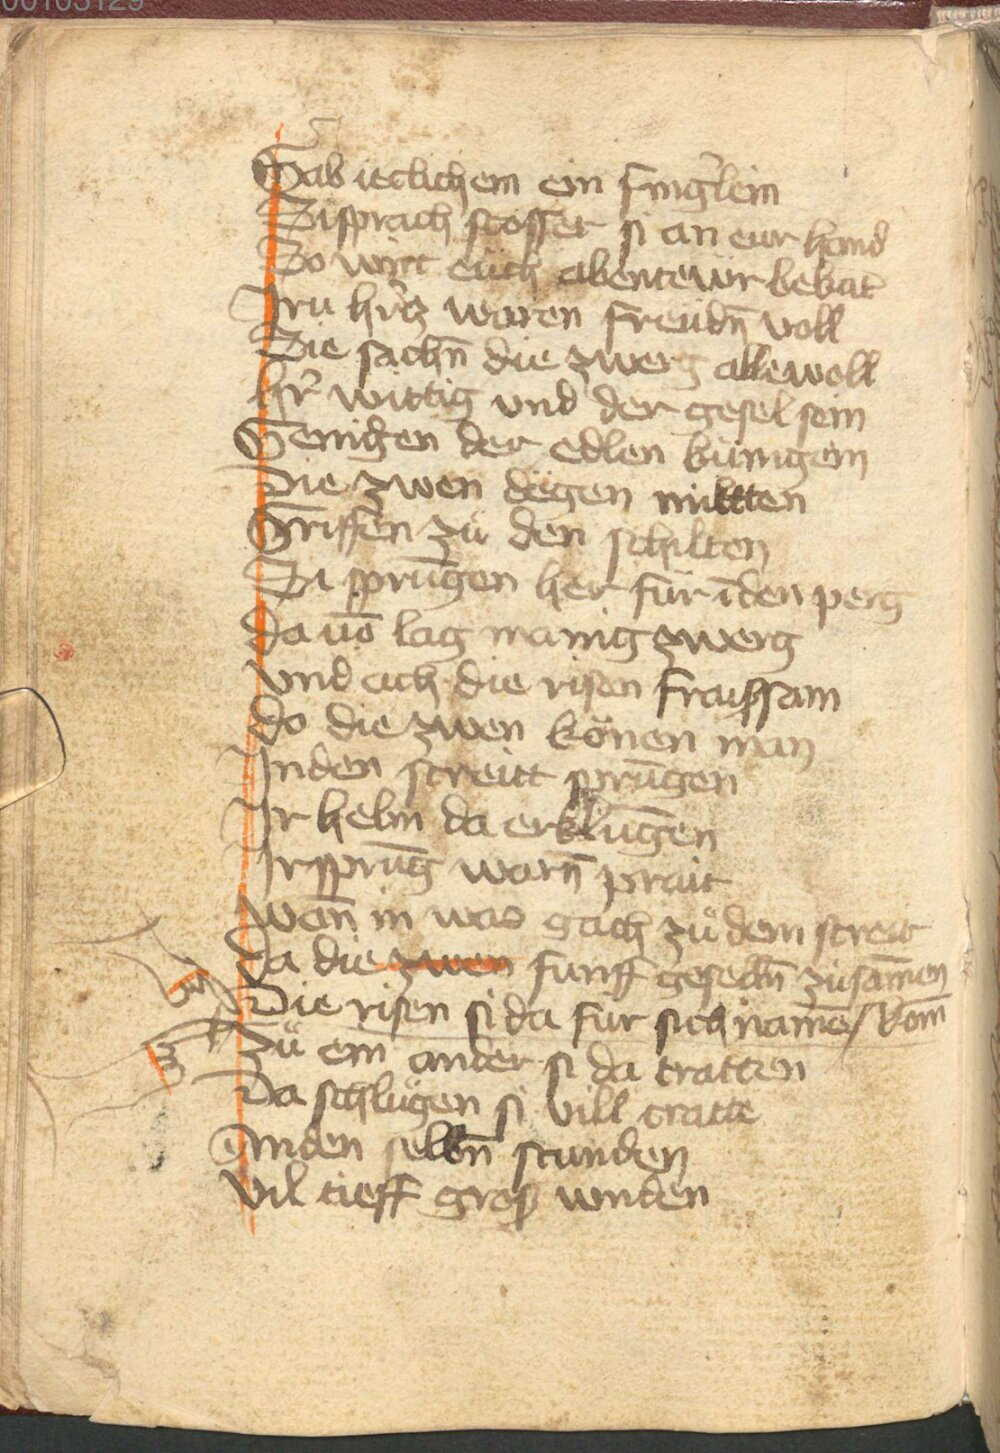 00103129
Gab ieclichem ein fing̃lein
Si sprach stosset si an eur hand
So wirt eüch abentewr bekãt
Iru hr̃cz waren freüdn̄ voll
Die sachn̄ die zwerg alle woll
Hr̃ wittig vnd der gesel sein
Genigen der edlen künigein
Die zwen degen miltten
Griffen zů den schilten
Si sprūgen her für ī den perg
da vō lag manig zwerg
vnd ach die risen fraissam
do die zwen könen man
In den streitt sprūgen
Ir helm da erklūgen
Ir sprūg warn̄ prait
wan̄ in was gach zů dem streit
Da die zwen funff geselln̄ zusam̄en
Die risen si da für sich nam̄e / kom̄
Zů ein ander si da tratten
Da schlůgen si vill tratte
An den selbn̄ stunden
vil tieff gros wnden